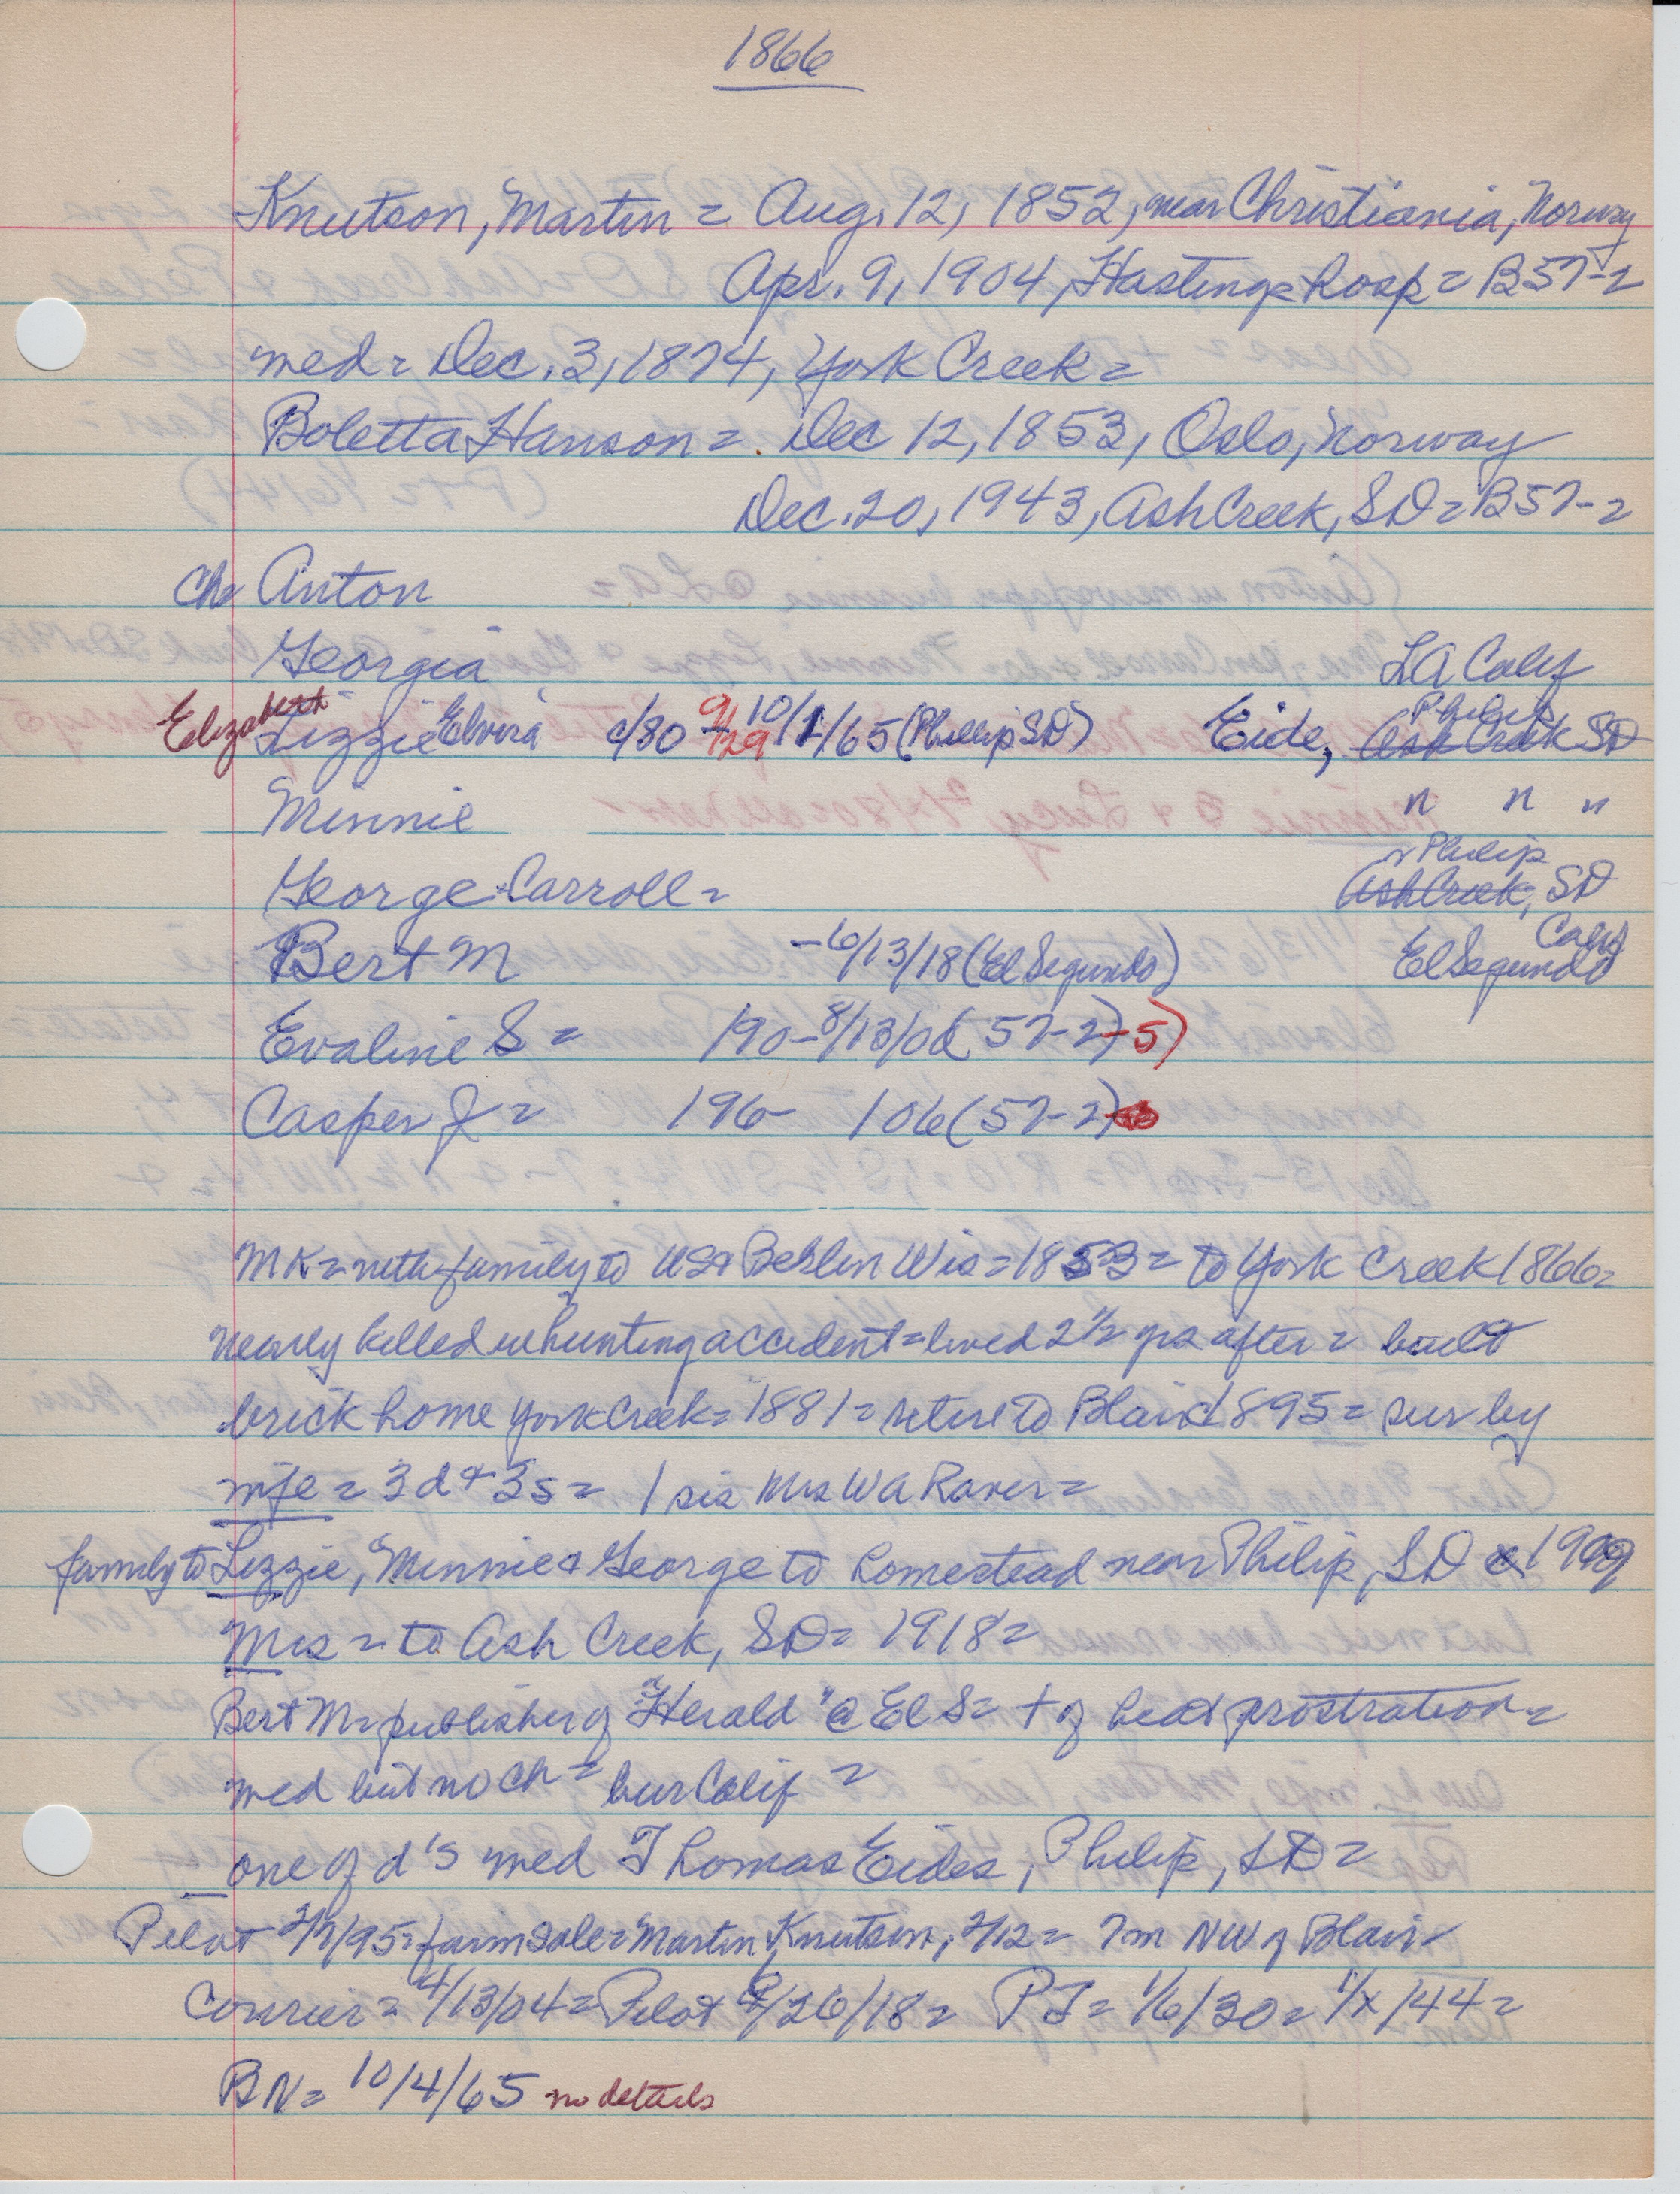 1866
Knutson, Martin = Aug. 12, 1852, near Christiania, Norway
Apr. 9, 1904, Hastings Hosp = B57-2
med = Dec. 3, 1874, York Creek =
Boletta Hanson = Dec 12, 1853, Oslo, Norway
Dec. 20, 1943, Ash Creek, SD = B57-2
Ch Anton
Georgia LA Calif
Elizabeth Lizzie Elvira c/80 - 9/29 10/1/65 (Phillip SD) Eide, Philip Ash Creek SD
Minnie " " "
George Carroll = Philip Ash Creek, SD
Bert M - 6/13/18 (El Segundo) El Segundo Calif
Evaline S = 190 - 8/13/0 (57-2)-5)
Casper J = 196 - 106 (57-2)
MK = with family to USA Berlin Wis = 1853 = to York Creek 1866 =
nearly killed in hunting accident = lived 2 1/2 yrs after = built
brick home York Creek = 1881 = retire to Blair 1895 = sur by
wife = 3 d + 3 s = 1 sis Mrs W A Raner =
family to Lizzie, Minnie & George to homestead near Philip, SD 1909
Mrs = to Ash Creek, SD = 1918 =
Bert M = publisher of "Herald" @ El S = + of heat prostration =
med but no ch = bur Calif =
one of d's med Thomas Eides, Philip, SD =
Pilot 2/7/95 = farm sale = Martin Knutson, 2/12 = 7m NW of Blair
Courier = 4/13/04 = Pilot /26/18 = PJ = 1/6/30 = 1/x/44 =
BN = 10/4/65 no details